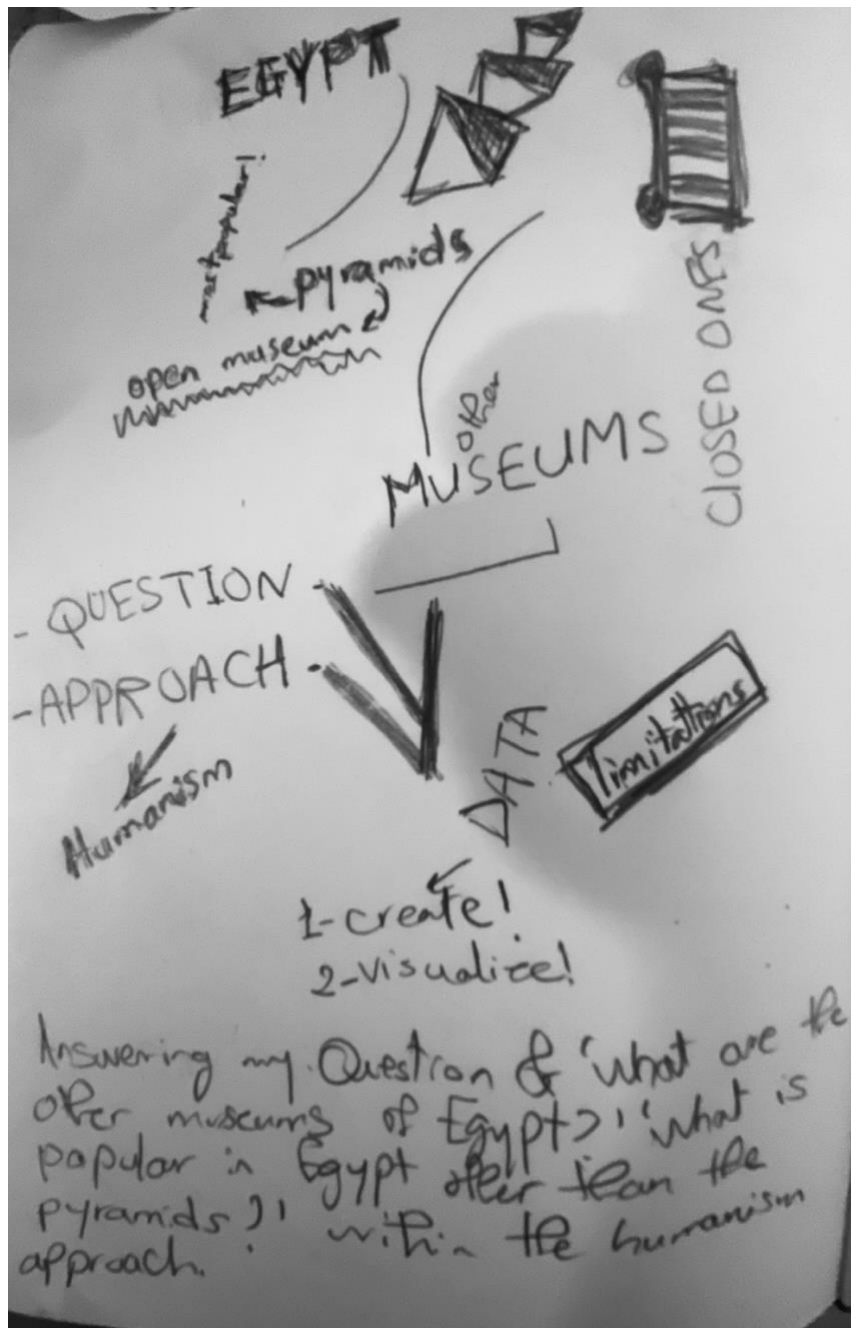 EGYPT
most popular!
pyramids
open museum
other
MUSEUMS
CLOSED ONES
- QUESTION -
- APPROACH -
Humanism
DATA
limitations
1-create!
2-visualize!
Answering my Question & 'what are the
other museums of Egypt?' 'what is
popular in Egypt other than the
pyramids?' within the humanism
approach.